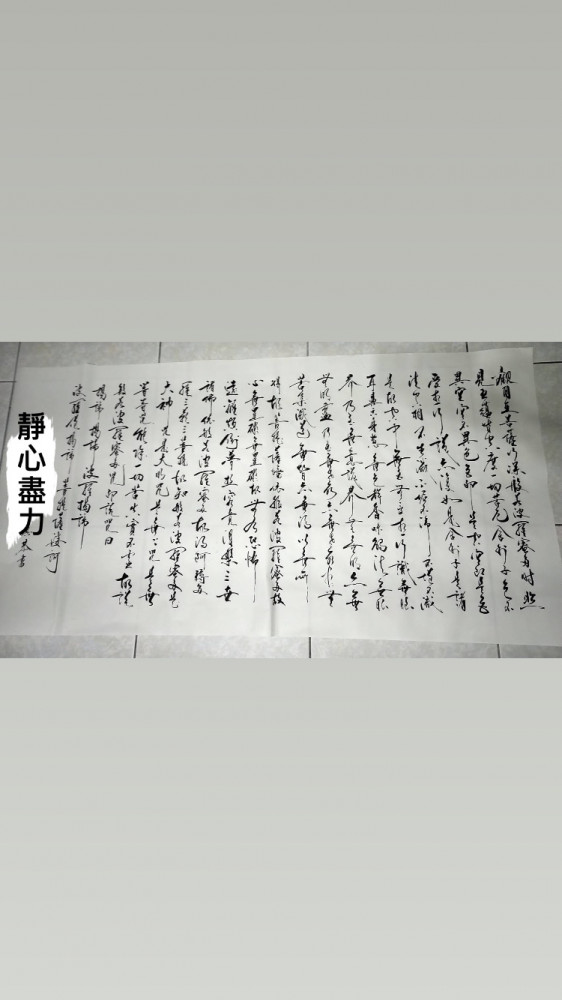 觀自在菩薩行深般若波羅蜜多時照
見五蘊皆空度一切苦厄舍利子色不
異空空不異色色即是空空即是色
受想行識亦復如是舍利子是諸
法空相不生不滅不垢不淨不增不減
是故空中無色無受想行識無眼
耳鼻舌身意無色聲香味觸法無眼
界乃至無意識界無無明亦無
無明盡乃至無老死亦無老死盡無
苦集滅道無智亦無得以無所
得故菩提薩埵依般若波羅蜜多故
心無罣礙無罣礙故無有恐怖
遠離顛倒夢想究竟涅槃三世
諸佛依般若波羅蜜多故得阿耨多
羅三藐三菩提故知般若波羅蜜多是
大神咒是大明咒是無上咒是無
等等咒能除一切苦真實不虛故說
般若波羅蜜多咒即說咒曰
揭諦揭諦 波羅揭諦
波羅僧揭諦 菩提薩婆訶
書
靜心盡力